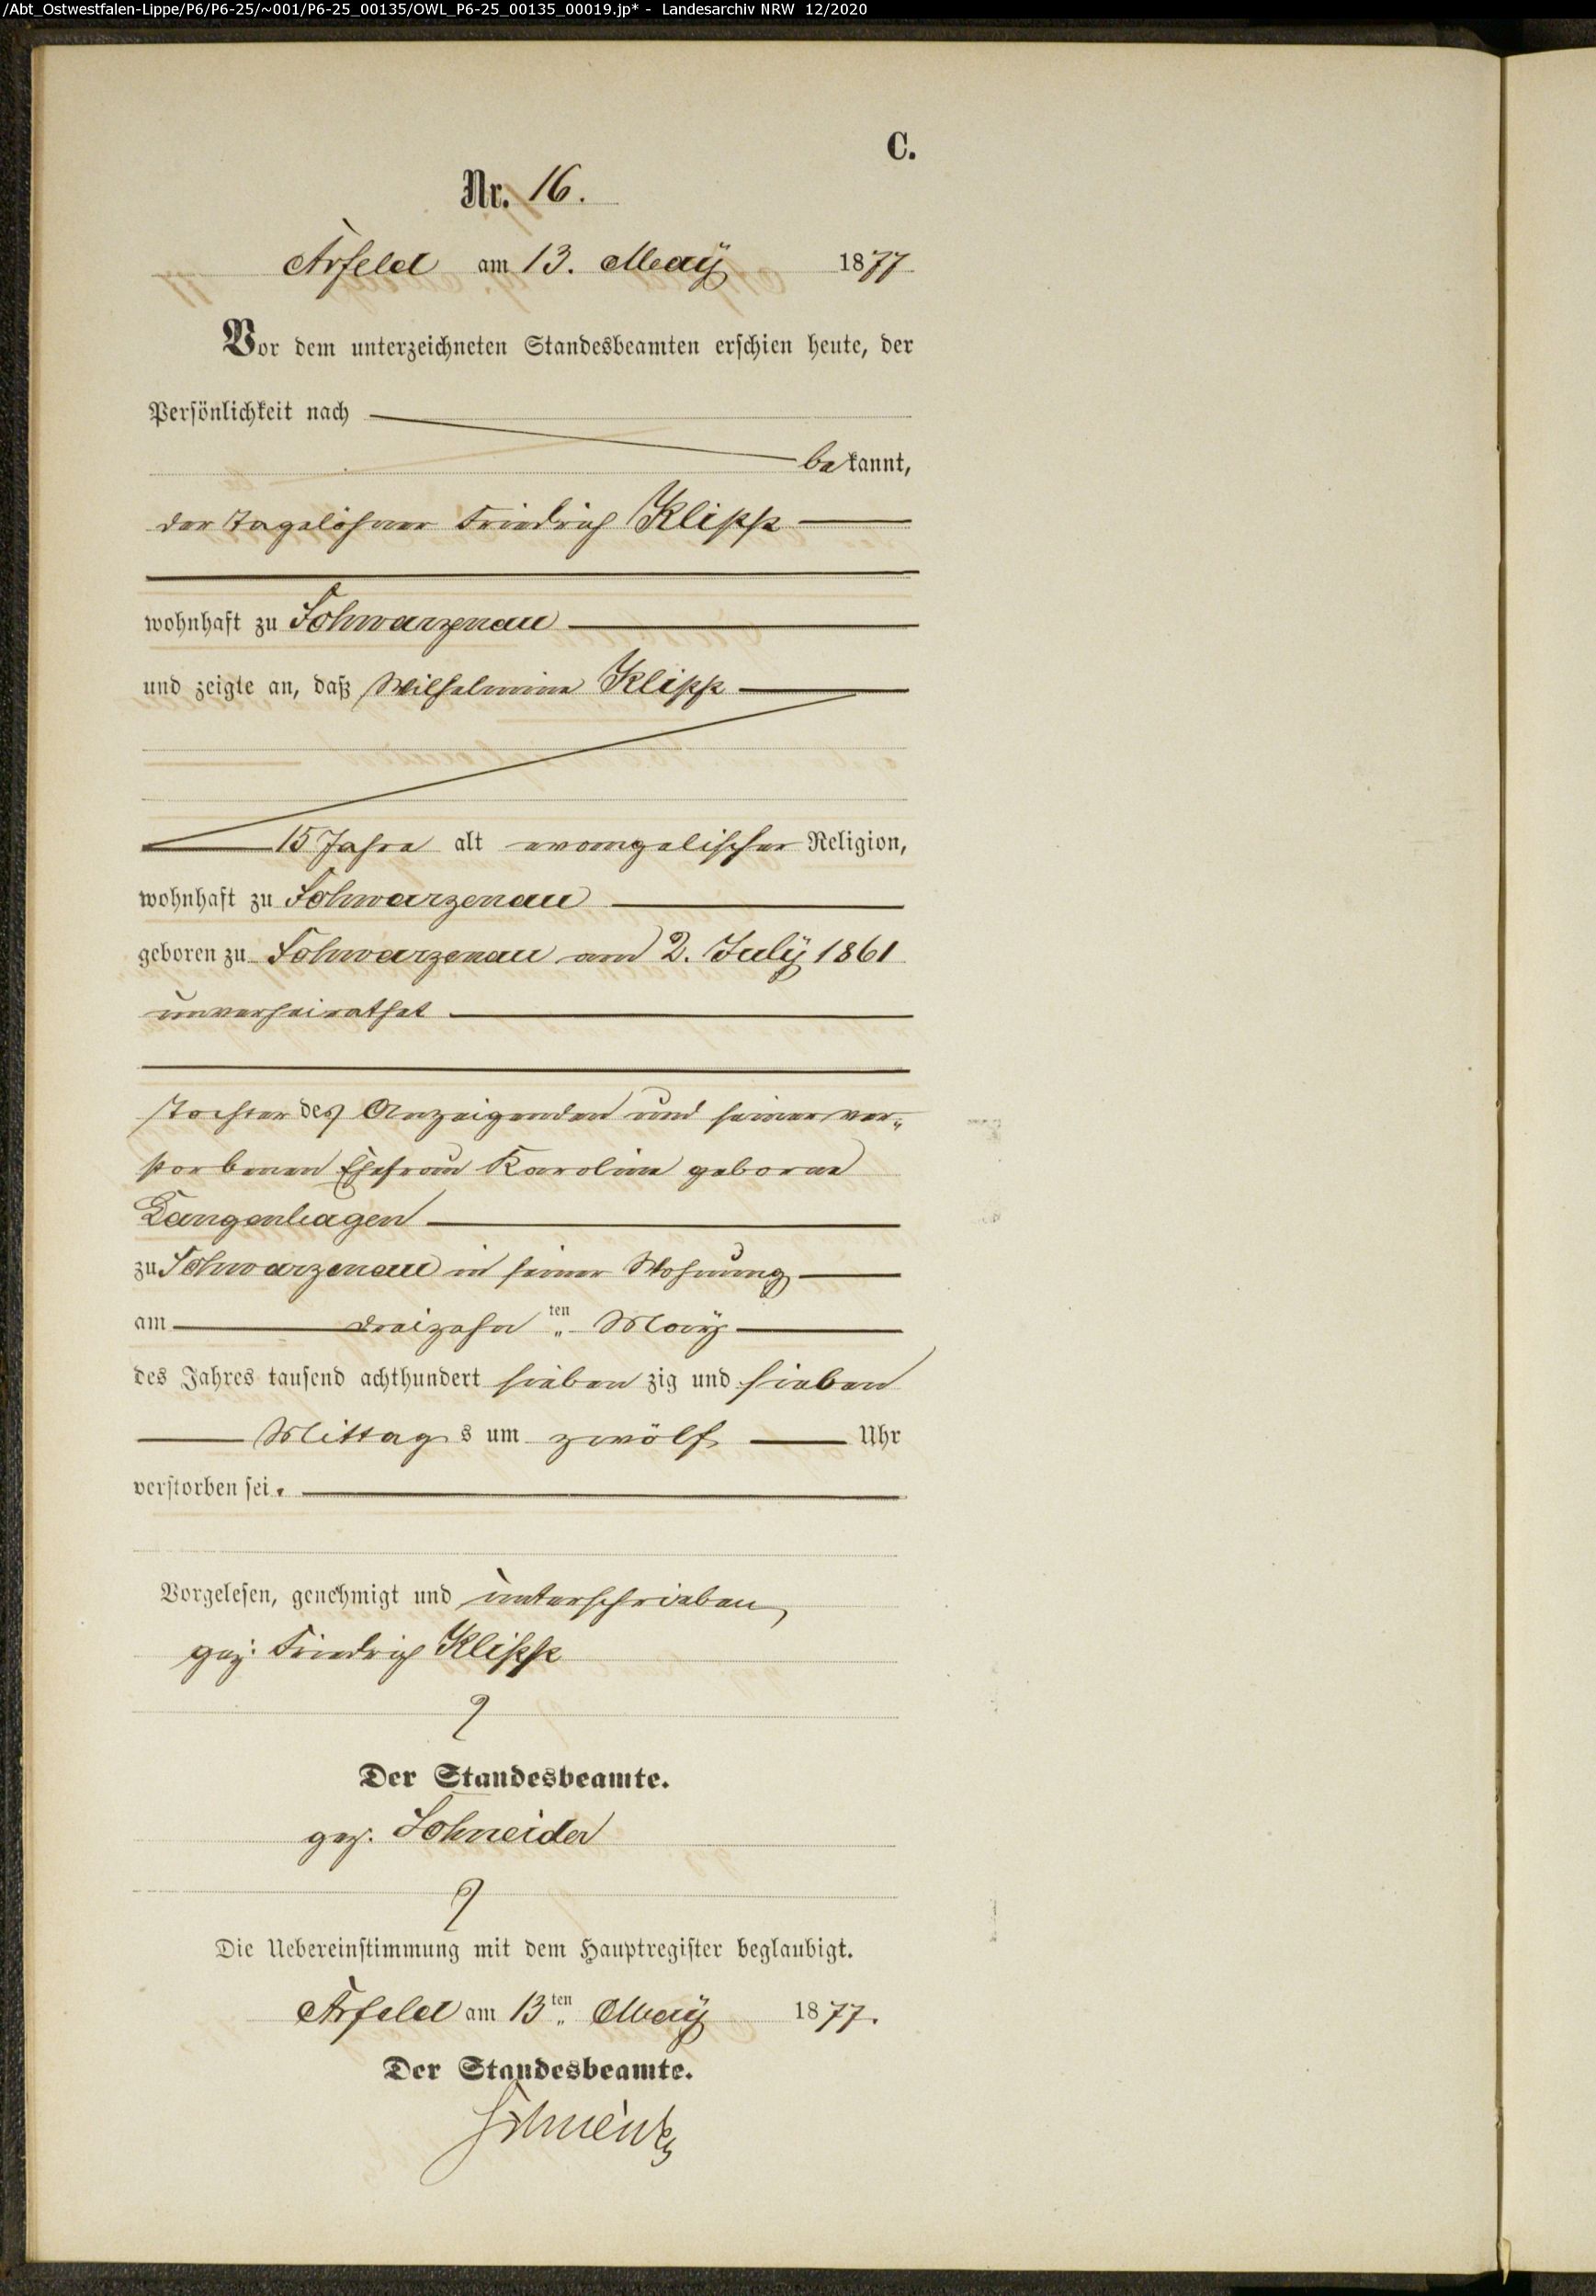 /Abt_Ostwestfalen-Lippe/P6/P6-25/~001/P6-25_00135/OWL_P6-25_00135_00019.jp* - Landesarchiv NRW 12/2020
C.
Nr. 16.
Arfeld am 13. May 1877
Vor dem unterzeichneten Standesbeamten erschien heute, der
Persönlichkeit nach
bekannt,
der Tagelöhner Friedrich Klipp
wohnhaft zu Schwarzenau
und zeigte an, daß Wilhelmine Klipp
15 Jahre alt evangelischer Religion,
wohnhaft zu Schwarzenau
geboren zu Schwarzenau am 2. July 1861
unverheirathet
Tochter des Anzeigenden und seiner ver„
storbenen Ehefrau Karoline geborne
Langenhagen
zu Schwarzenau in seiner Wohnung
am dreizehn ten May
des Jahres tausend achthundert sieben zig und sieben
Mittags um zwölf Uhr
verstorben sei.
Vorgelesen, genehmigt und unterschrieben,
gez: Friedrich Klipp
Der Standesbeamte.
gez. Schneider
Die Uebereinstimmung mit dem Hauptregister beglaubigt.
Arfeld am 13ten May 1877.
Der Standesbeamte.
Schneider